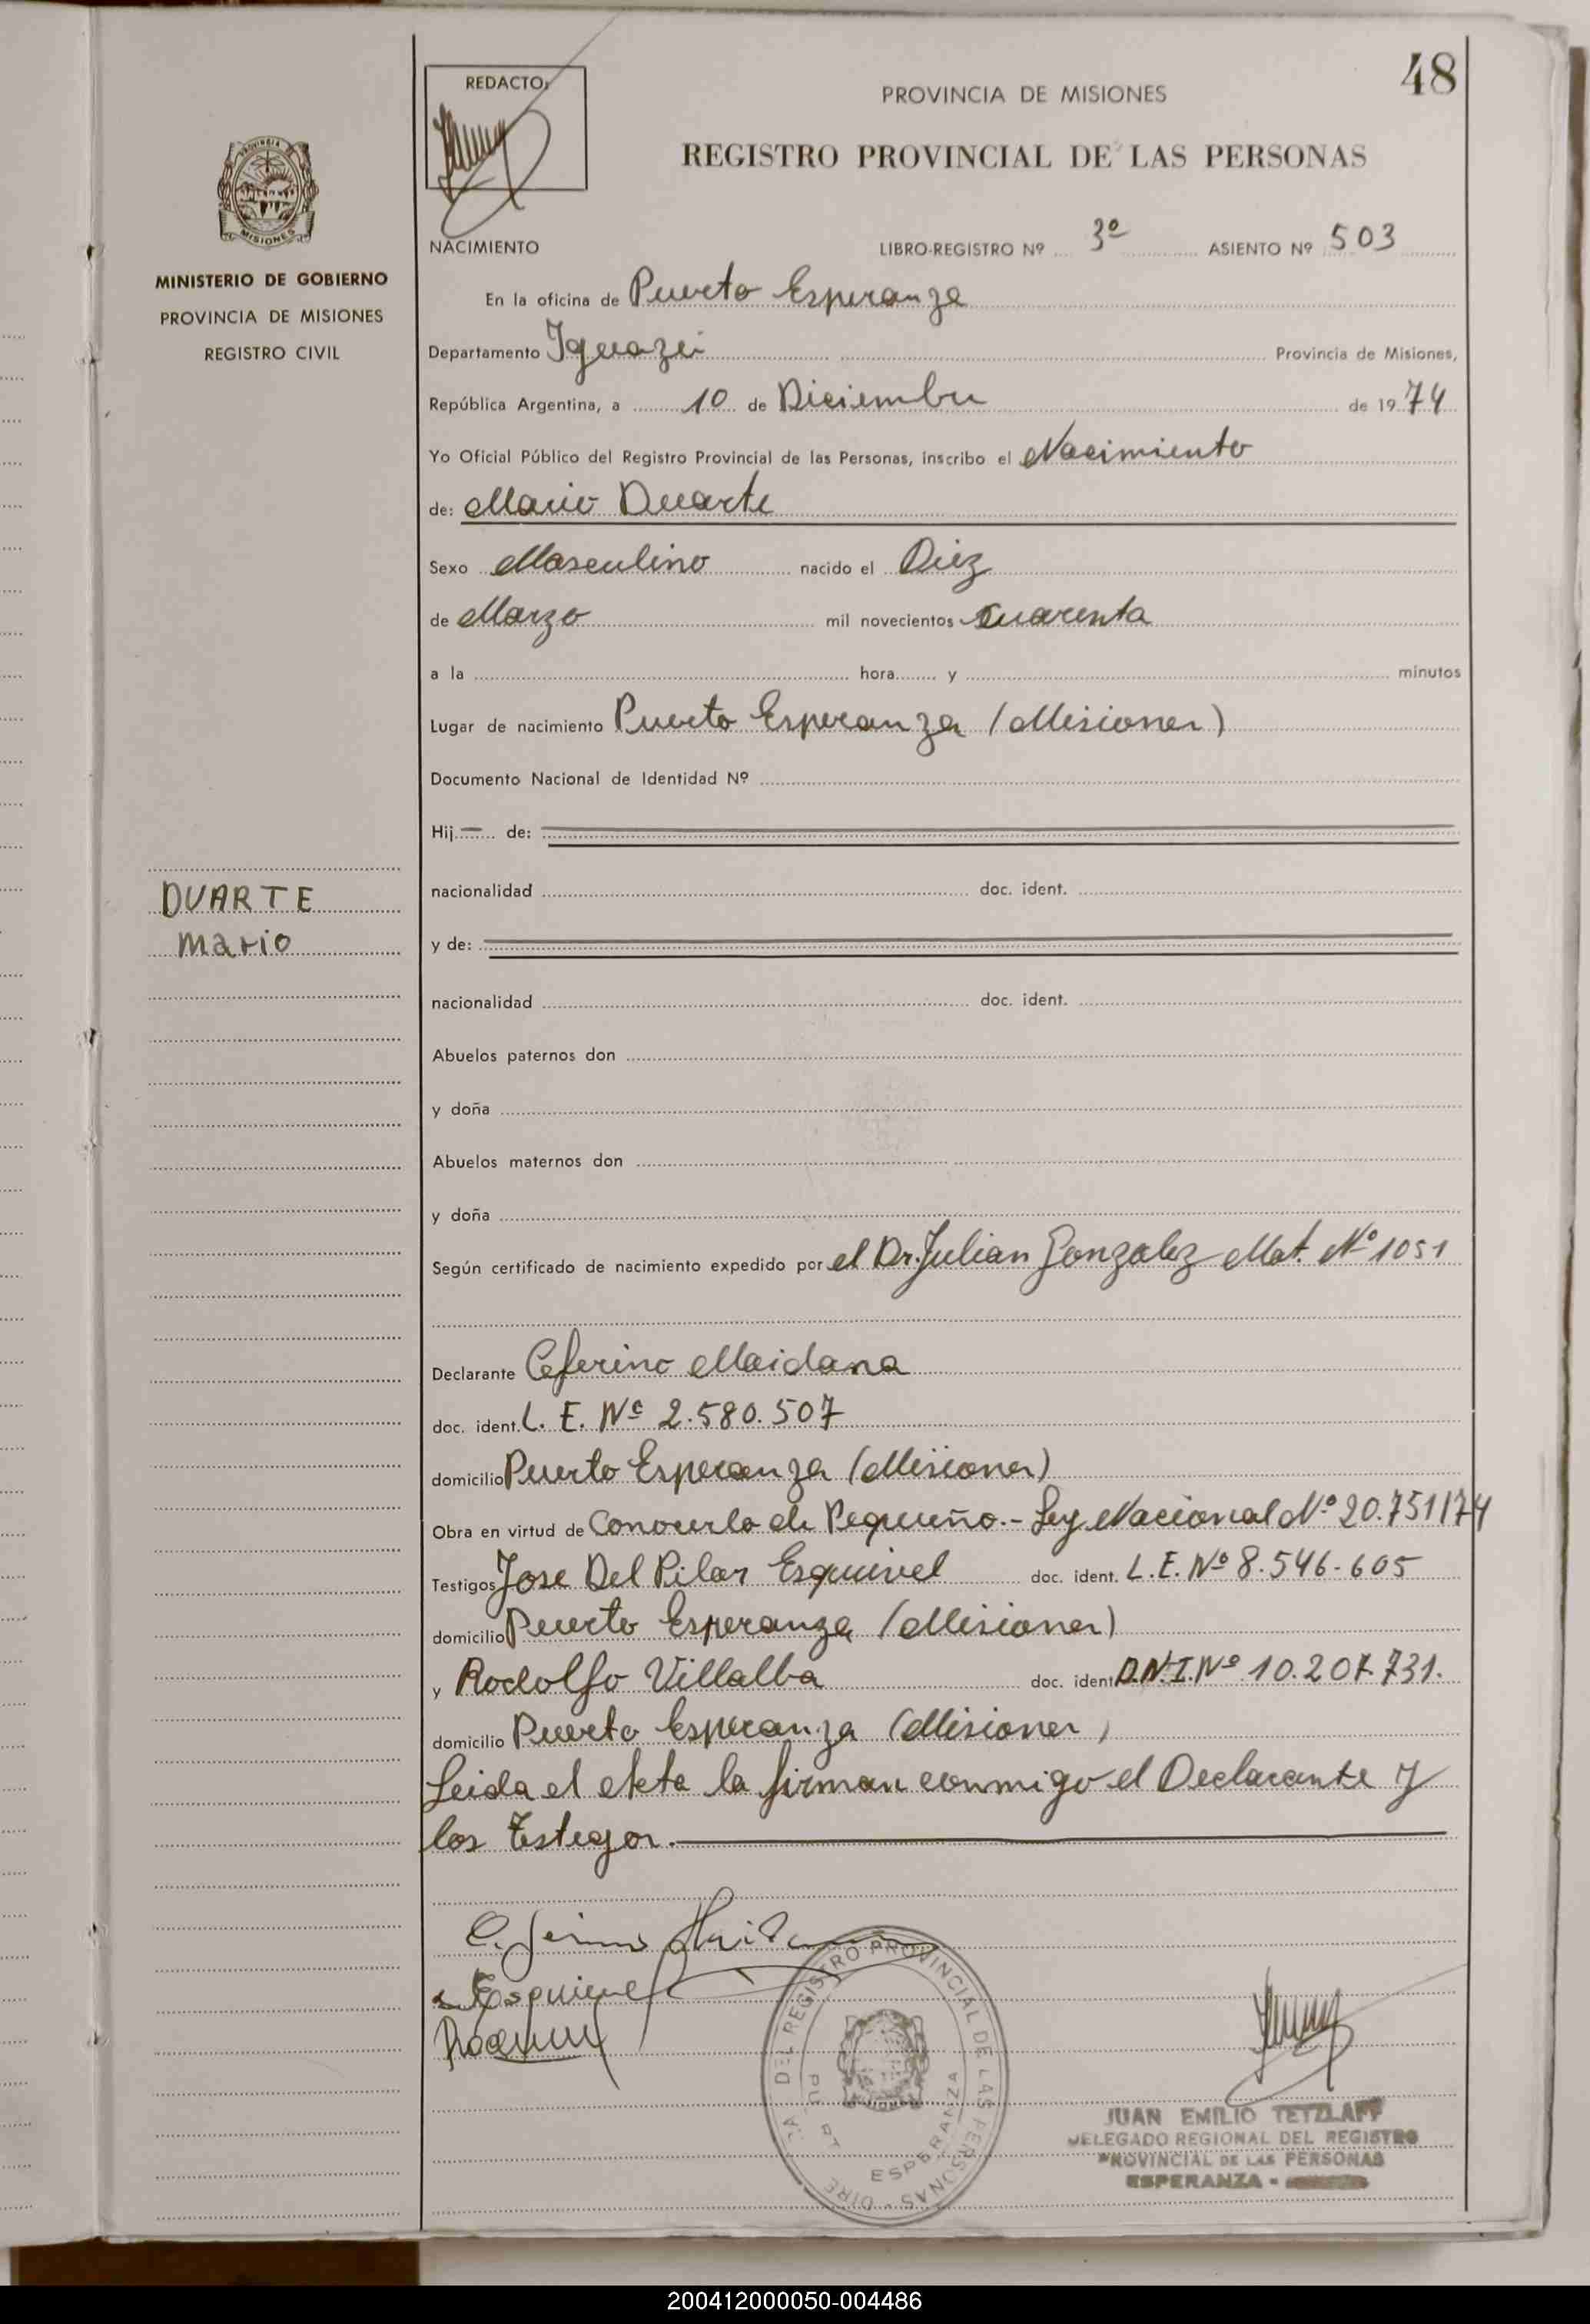 48
REDACTO:
PROVINCIA DE MISIONES
REGISTRO PROVINCIAL DE LAS PERSONAS
PROVINCIA DE
MISIONES
MINISTERIO DE GOBIERNO
PROVINCIA DE MISIONES
REGISTRO CIVIL
NACIMIENTO LIBRO-REGISTRO Nº 3º ASIENTO Nº 503
En la oficina de Puerto Esperanza
Departamento Iguazú Provincia de Misiones,
República Argentina, a 10 de Diciembre de 1974
Yo Oficial Público del Registro Provincial de las Personas, inscribo el Nacimiento
de: Mario Duarte
Sexo Masculino nacido el Diez
de Marzo mil novecientos cuarenta
a la hora y minutos
Lugar de nacimiento Puerto Esperanza (Misiones)
Documento Nacional de Identidad Nº
Hij— de:
DUARTE
Mario
nacionalidad doc. ident.
y de:
nacionalidad doc. ident.
Abuelos paternos don
y doña
Abuelos maternos don
y doña
Según certificado de nacimiento expedido por el Dr. Julian Gonzalez Mat. Nº 1051
Declarante Ceferino Maidana
doc. ident. L. E. Nº 2.580.507
domicilio Puerto Esperanza (Misiones)
Obra en virtud de Conocerlo de Pequeño.- Ley Nacional Nº 20.751/74
Testigos Jose Del Pilar Esquivel doc. ident. L.E. Nº 8.546.605
domicilio Puerto Esperanza (Misiones)
y Rodolfo Villalba doc. ident. D.N.I. Nº 10.207.731.
domicilio Puerto Esperanza (Misiones)
Leida el Acta la firman conmigo el Declarante y
los Testigos.
Esquivel
DEL REGISTRO PROVINCIAL DE LAS PERSONAS
ESPERANZA
JUAN EMILIO TETZLAFF
DELEGADO REGIONAL DEL REGISTRO
PROVINCIAL DE LAS PERSONAS
ESPERANZA -
200412000050-004486